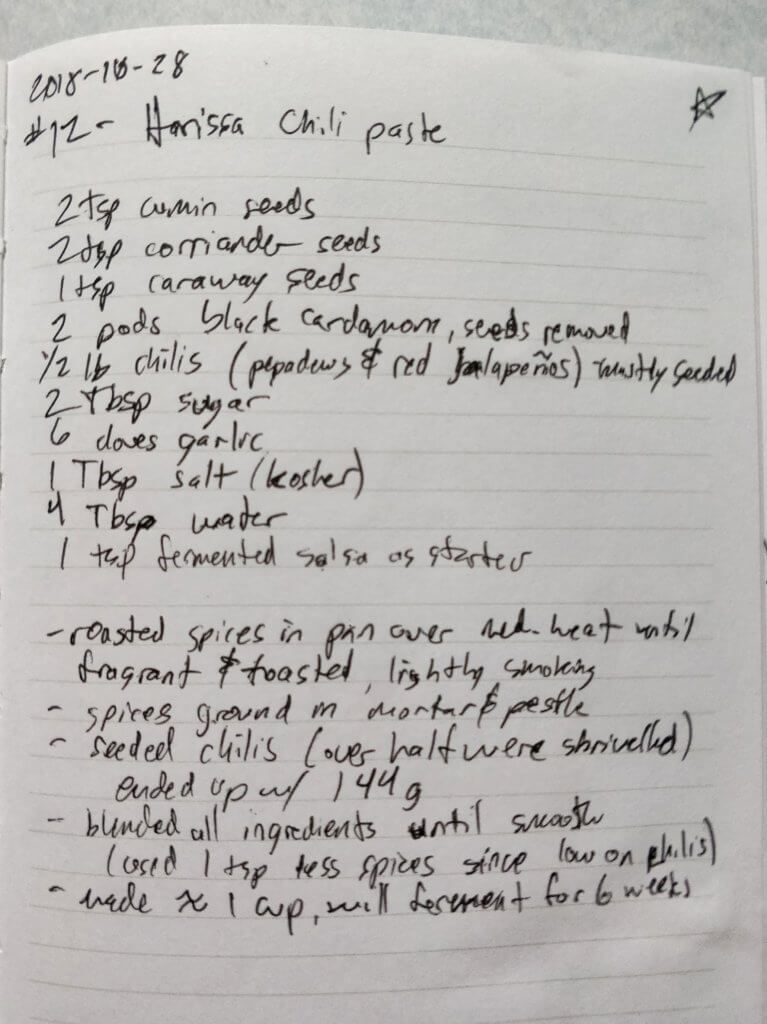 2018-10-28
#12 - Harissa Chili paste
2 tsp cumin seeds
2 tsp corriander seeds
1 tsp caraway seeds
2 pods black cardamom, seeds removed
1/2 lb chilis (pepadews & red Jalapeños) mostly seeded
2 Tbsp sugar
6 cloves garlic
1 Tbsp salt (kosher)
4 Tbsp water
1 tsp fermented salsa as starter
- roasted spices in pan over med. heat until
fragrant & toasted, lightly smoking
- spices ground in mortar & pestle
- seeded chilis (over half were shrivelled)
ended up w/ 144 g
- blended all ingredients until smooth
(used 1 tsp less spices since low on chilis)
- made ≈ 1 cup, will ferement for 6 weeks